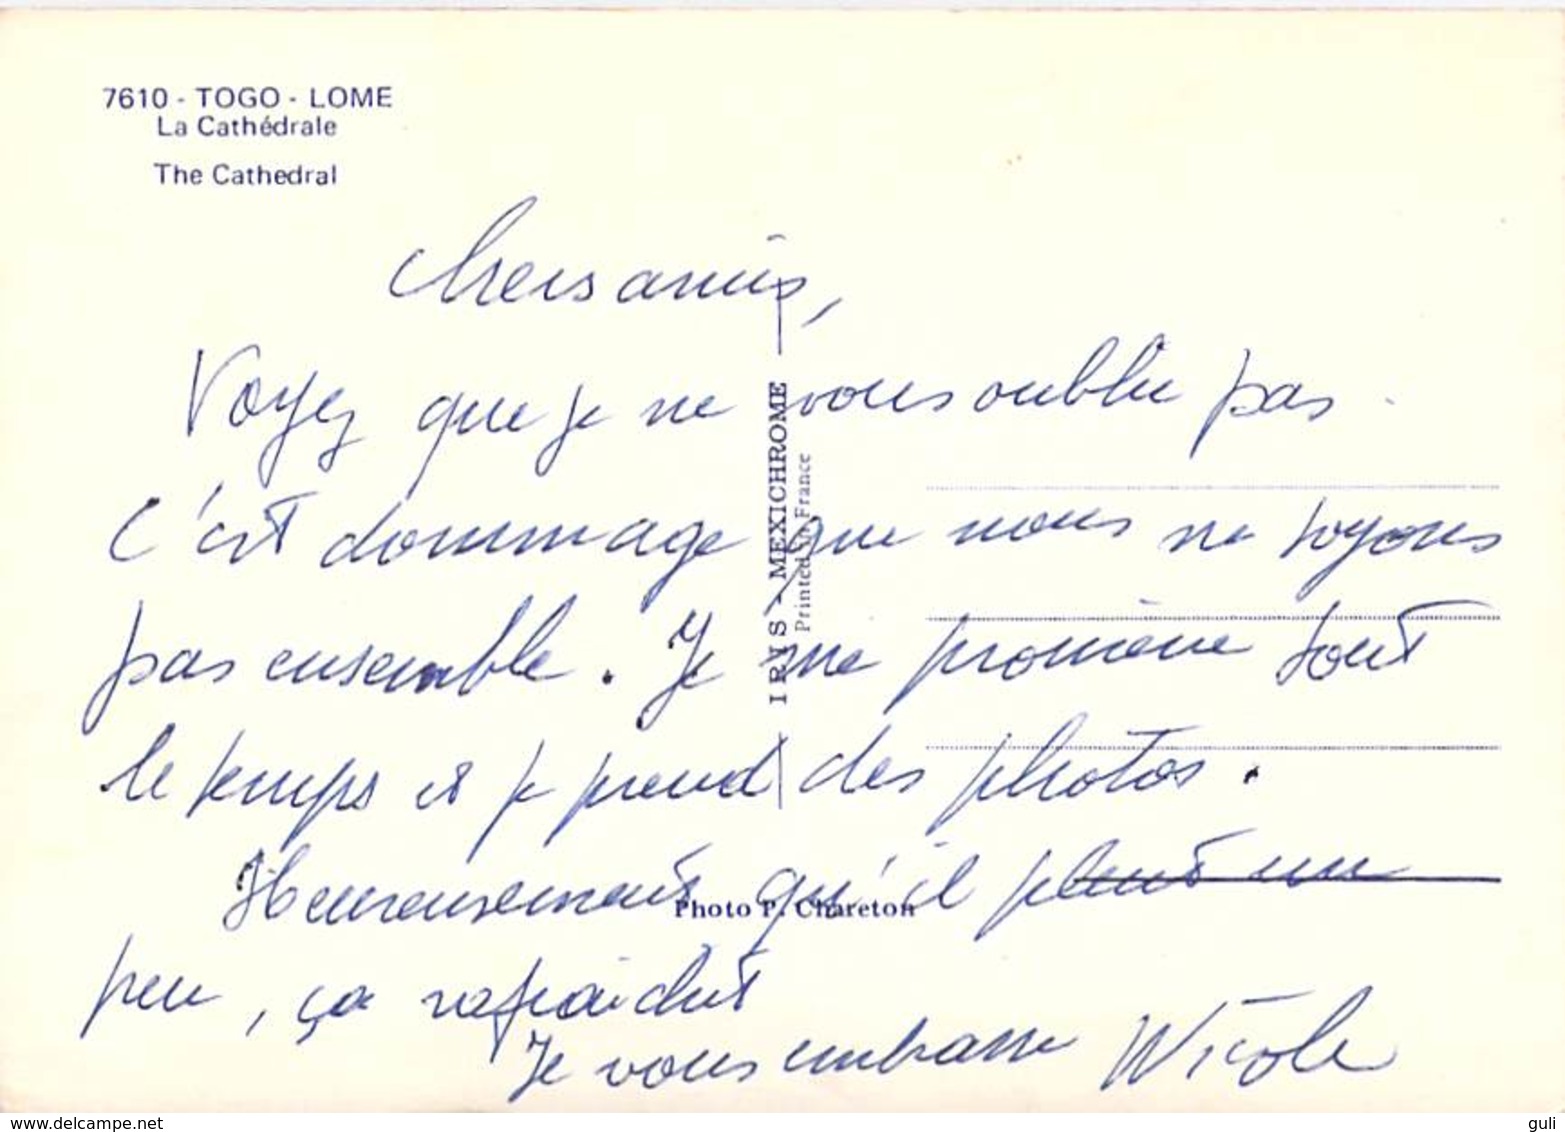 7610 - TOGO - LOME
La Cathédrale
The Cathedral
Chers amis,
Voyez que je ne vous oublie pas.
C'est dommage que nous ne soyons
pas ensemble. Je me promène tout
le temps et je prend des photos.
Heureusement qu'il pleut un
peu, ça rafraichit
Je vous embrasse Nicole
IRIS - MEXICHROME
Printed in France
Photo P. Chareton
www.delcampe.net
guli